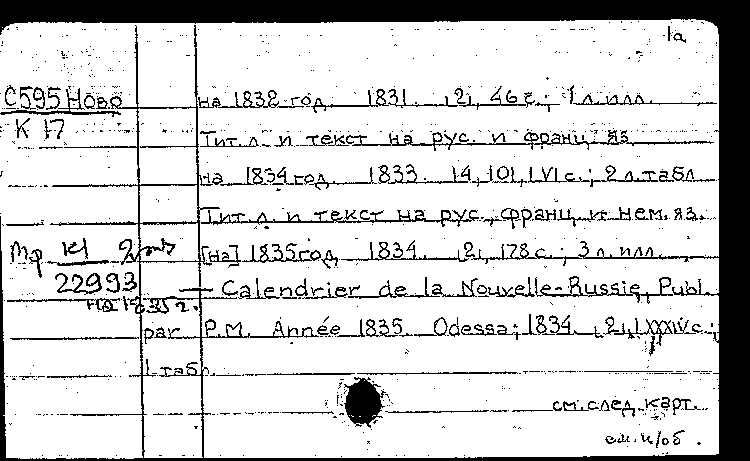 1а
С595Ново на 1832 год. 1831. |2|, 46 с.; 1 л. илл.
К 17 Тит. л. и текст на рус. и франц. яз.
на 1834 год. 1833. 14, 101, LVI с.; 2 л. табл
Тит. л. и текст на рус., франц. и нем. яз.
Мф К1 [на] 1835 год 1834. |2|, 178 с.; 3 л. илл.
22993 — Calendrier de la Nouvelle-Russie, Publ.
на 1835 г.
par P.M. Année 1835. Odessa; 1834. |2|, LXXXIV с.;
1 табл.
см. след. карт.
см. н/об.